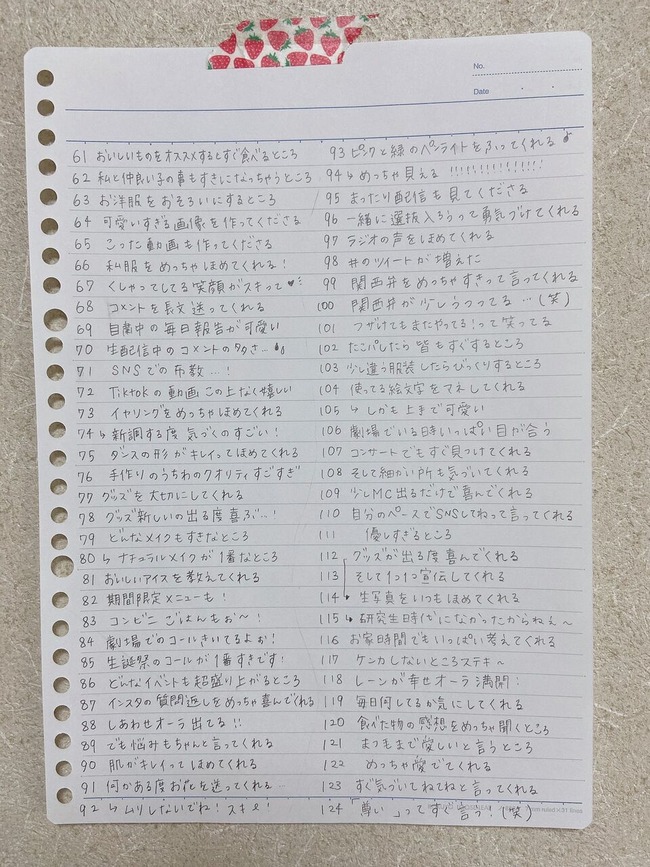 No.
Date
61 おいしいものをオススメするとすぐ食べるところ
62 私と仲良い子の事もすきになっちゃうところ
63 お洋服をおそろいにするところ
64 可愛いすぎる画像を作ってくださる
65 こった動画も作ってくださる
66 私服をめっちゃほめてくれる!
67 くしゃってしてる笑顔がスキって♥
68 コメントを長文送ってくれる
69 自粛中の毎日報告が可愛い
70 生配信中のコメントの多さ…
71 SNSでの布教…!
72 Tiktokの動画この上なく嬉しい
73 イヤリングをめっちゃほめてくれる
74 ↳新調する度気づくのすごい!
75 ダンスの形がキレイってほめてくれる
76 手作りのうちわのクオリティすごすぎ
77 グッズを大切にしてくれる
78 グッズ新しいの出る度喜ぶ…!
79 どんなメイクもすきなところ
80 ↳ナチュラルメイクが1番なところ
81 おいしいアイスを教えてくれる
82 期間限定メニューも!
83 コンビニごはんもぉ〜!
84 劇場でのコールきいてるよぉ!
85 生誕祭のコールが1番すきです!
86 どんなイベントも超盛り上がるところ
87 インスタの質問返しをめっちゃ喜んでくれる
88 しあわせオーラ出てる!!
89 でも悩みもちゃんと言ってくれる
90 肌がキレイってほめてくれる
91 何かある度お花を送ってくれる
92 ↳ムリしないでね!スキ!
93 ピンクと緑のペンライトをふってくれる
94 ↳めっちゃ見える!!!!!!!!!!!!!!!
95 まったり配信も見てくださる
96 一緒に選抜入ろうって勇気づけてくれる
97 ラジオの声をほめてくれる
98 #のツイートが増えた
99 関西弁をめっちゃすきって言ってくれる
100 関西弁が少しうつってる…(笑)
101 フザけてもまたやってる!って笑ってる
102 たこパしたら皆もすぐするところ
103 少し違う服装したらびっくりするところ
104 使ってる絵文字をマネしてくれる
105 ↳しかも上まで可愛い
106 劇場でいる時いっぱい目が合う
107 コンサートでもすぐ見つけてくれる
108 そして細かい所も気づいてくれる
109 少しMC出るだけで喜んでくれる
110 自分のペースでSNSしてねって言ってくれる
111 優しすぎるところ
112 グッズが出る度喜んでくれる
113 そして1つ1つ宣伝してくれる
114 生写真をいつもほめてくれる
115 ↳研究生時代になかったからねぇ〜
116 お家時間でもいっぱい考えてくれる
117 ケンカしないところステキ〜
118 レーンが幸せオーラ満開!
119 毎日何してるか気にしてくれる
120 食べた物の感想をめっちゃ聞くところ
121 まつもまで愛しいと言うところ
122 めっちゃ愛でてくれる
123 すぐ気づいてねてねと言ってくれる
124 「尊い」ってすぐ言う!(笑)